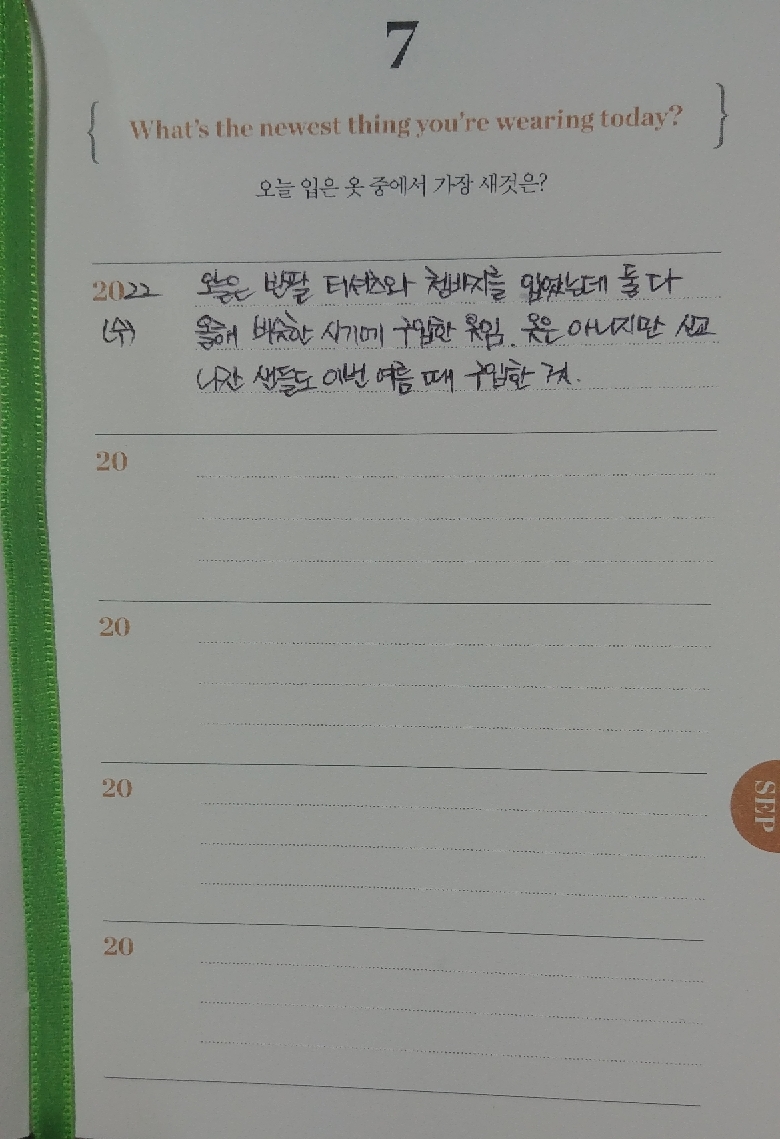 7
What's the newest thing you're wearing today?
오늘 입은 옷 중에서 가장 새것은?
2022 오늘은 반팔 티셔츠와 청바지를 입었는데 둘 다
(수) 올해 비슷한 시기에 구입한 옷임. 옷은 아니지만 신고
나간 샌들도 이번 여름 때 구입한 것.
20
20
20
SEP
20